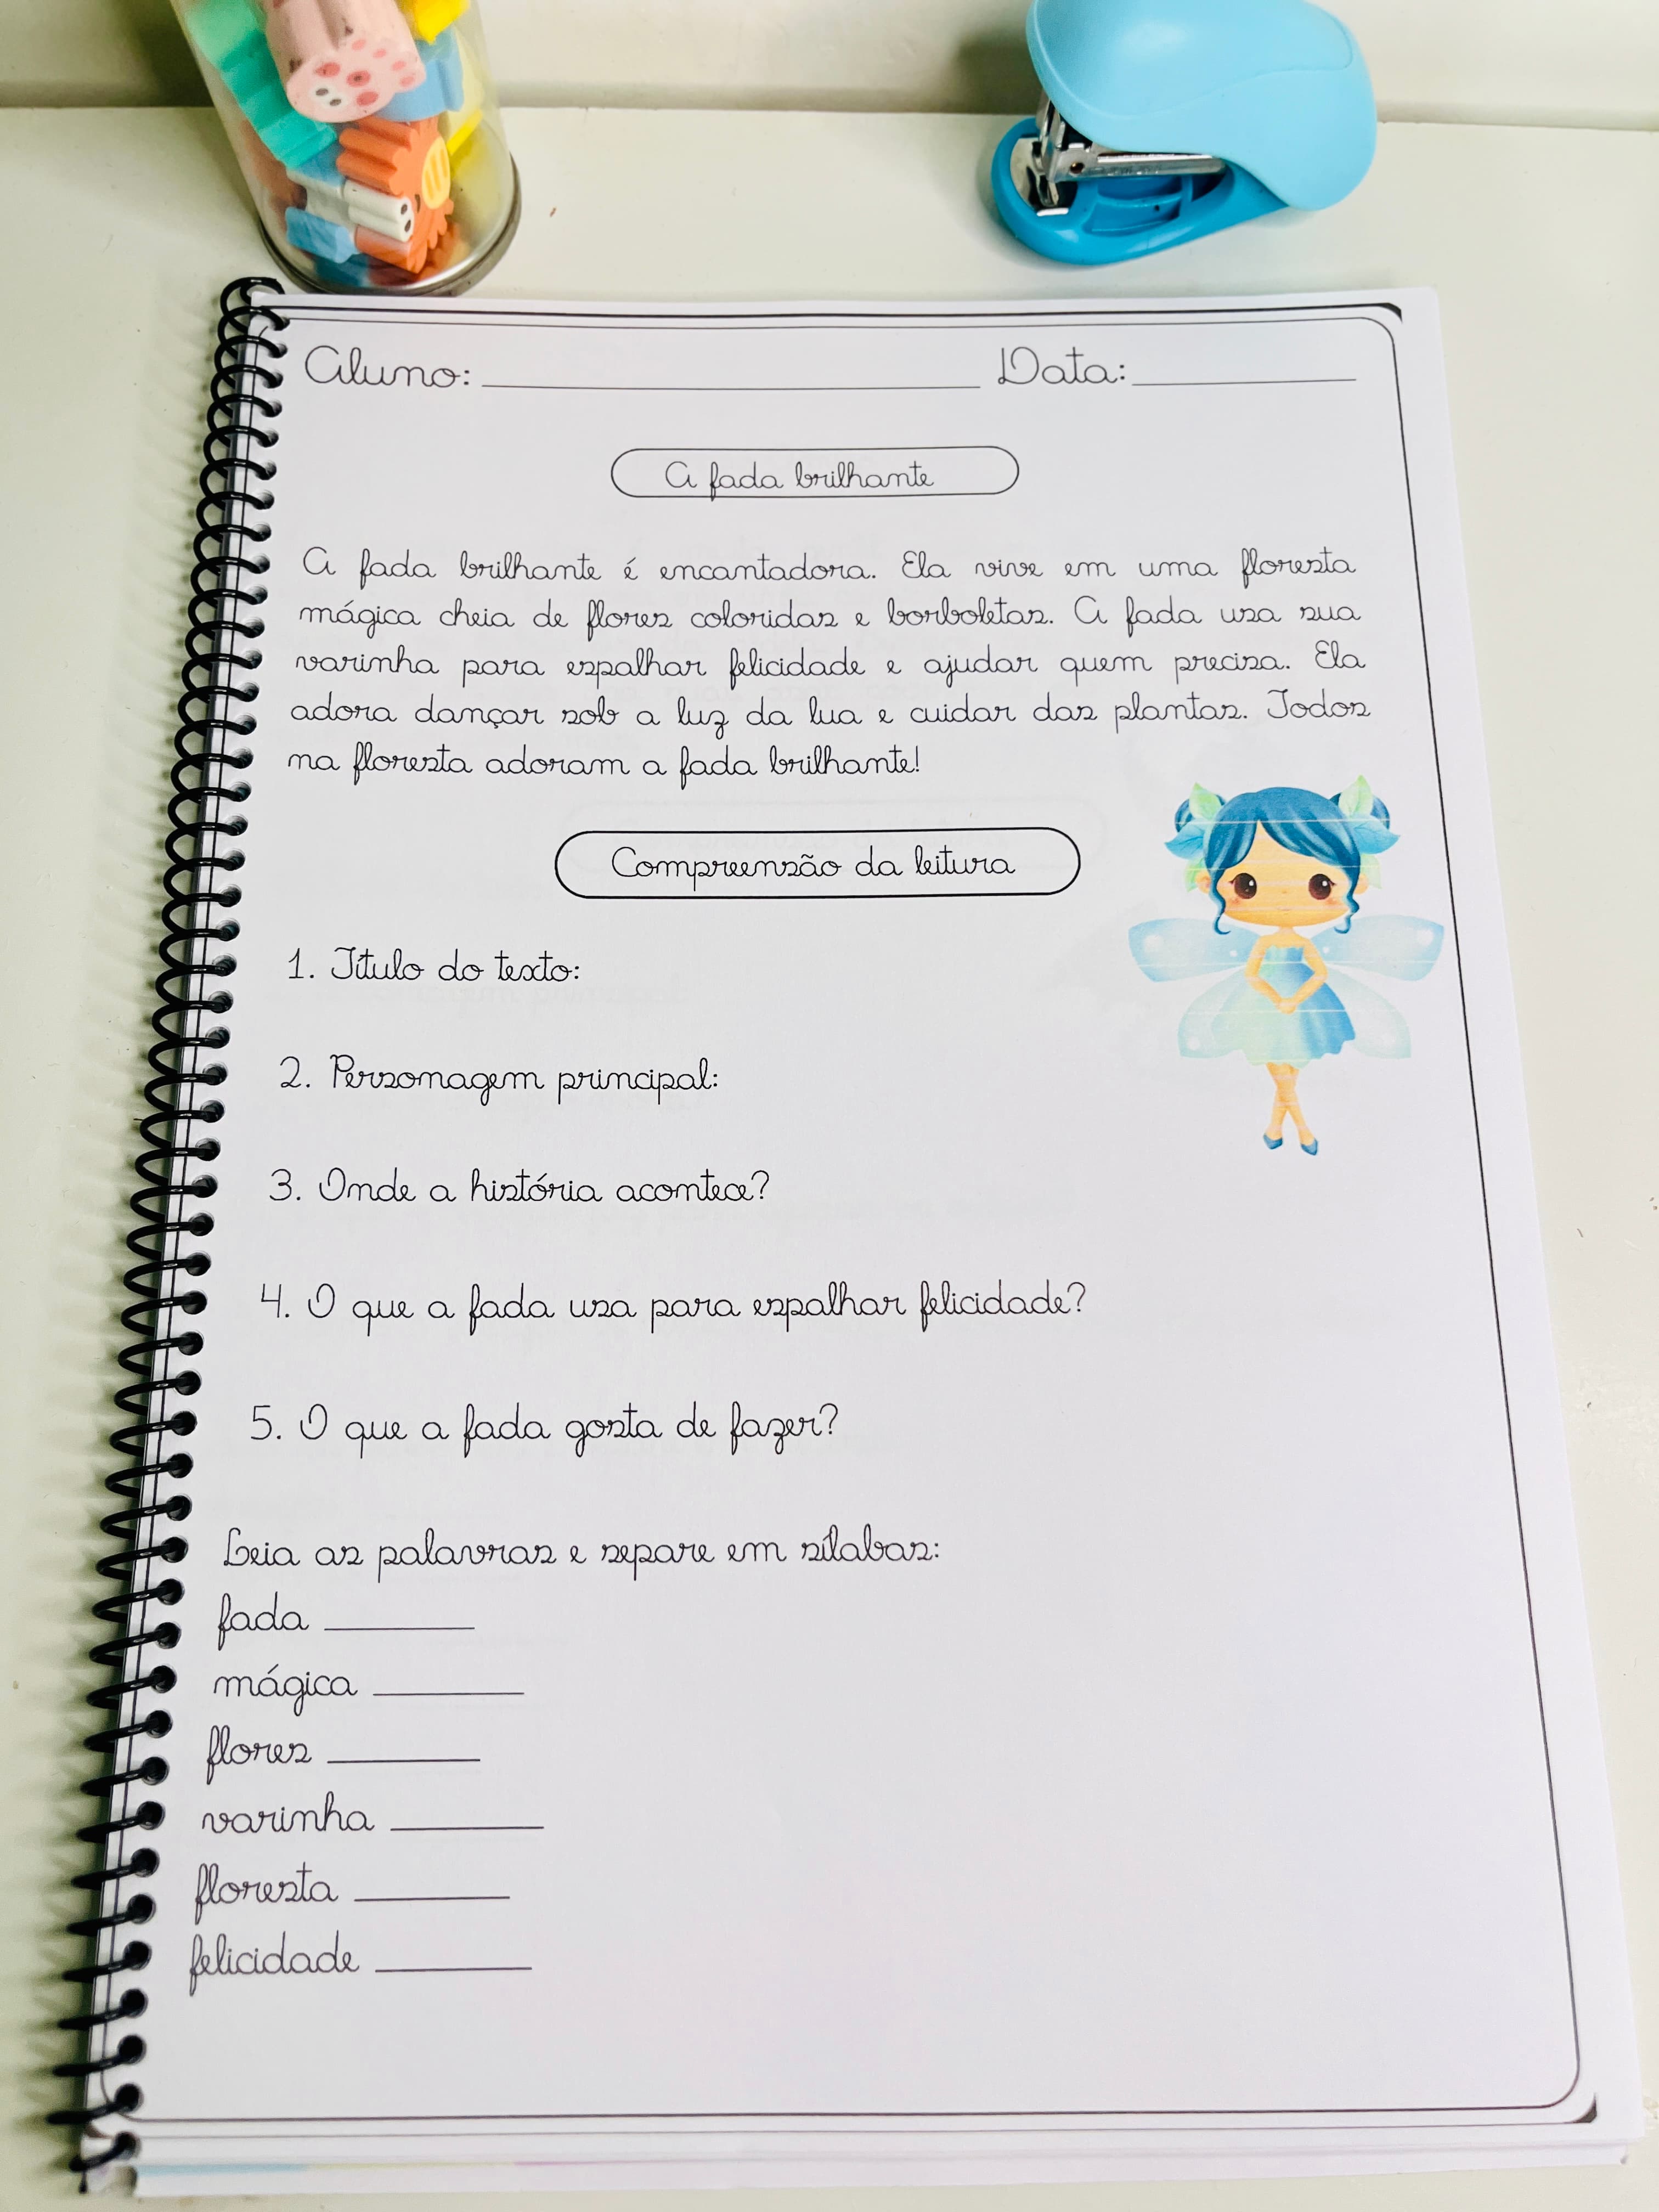 Aluno: ______ Data: ______
A fada brilhante
A fada brilhante é encantadora. Ela vive em uma floresta
mágica cheia de flores coloridas e borboletas. A fada usa sua
varinha para espalhar felicidade e ajudar quem precisa. Ela
adora dançar sob a luz da lua e cuidar das plantas. Todos
na floresta adoram a fada brilhante!
Compreensão da leitura
1. Título do texto:
2. Personagem principal:
3. Onde a história acontece?
4. O que a fada usa para espalhar felicidade?
5. O que a fada gosta de fazer?
Leia as palavras e separe em sílabas:
fada ______
mágica ______
flores ______
varinha ______
floresta ______
felicidade ______